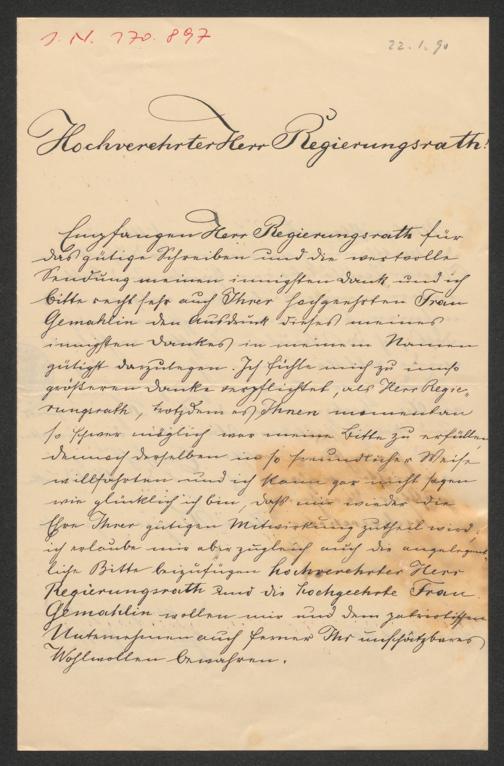 J. N. 170.897
22.1.90
Hochverehrter Herr Regierungsrath!
Empfangen Herr Regierungsrath für
das gütige Schreiben und die wertvolle
Sendung meinen innigsten Dank und ich
bitte recht sehr auch Ihrer hochgeehrten Frau
Gemahlin den Ausdruck dieses meines
innigsten Dankes in meinem Namen
gütigst darzulegen. Ich fühle mich zu umso
größeren Danke verpflichtet, als Herr Regie-
rungsrath, trotzdem es Ihnen momentan
so schwer möglich war meine Bitte zu erfüllen
dennoch derselben in so freundlicher Weise
willfahrten und ich kann gar nicht sagen
wie glücklich ich bin, daß mir wieder die
Ehre Ihrer gütigen Mitwirkung zutheil wird;
ich erlaube mir aber zugleich auch die angelegent-
liche Bitte beizufügen hochverehrter Herr
Regierungsrath und die hochgeehrte Frau
Gemahlin wollen mir und dem patriotischen
Unternehmen auch ferner Ihr unschätzbares
Wohlwollen bewahren.